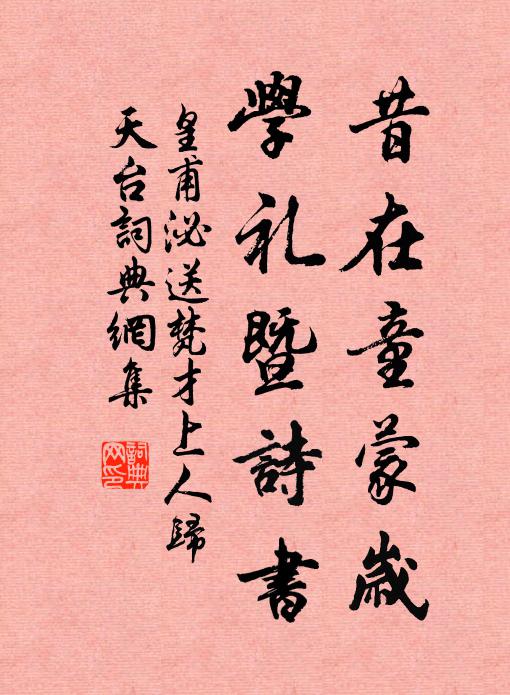 昔在童蒙歲
學礼暨詩書
皇甫泌送梵才上人歸
天台詞典網集
詞典
网印